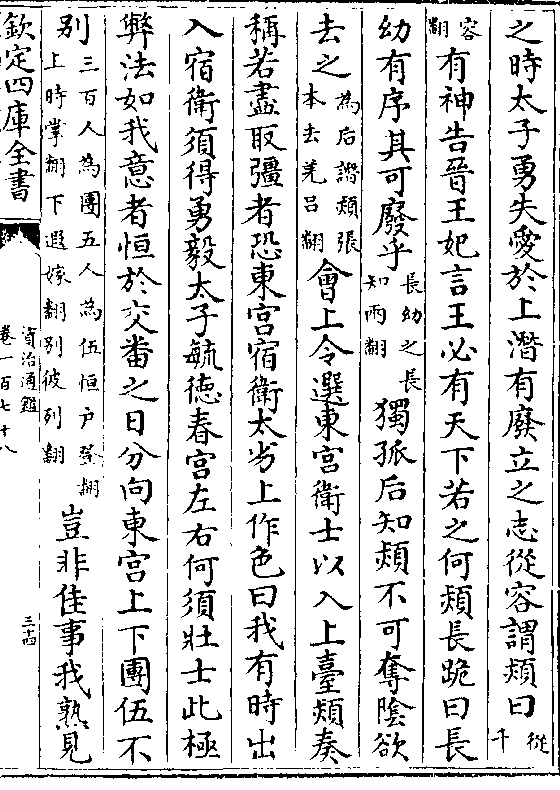 之時太子勇失愛於上潛有廢立之志從容謂熲曰從千
容翻有神告晉王妃言王必有天下若之何熲長跪曰長
幼有序其可廢乎長幼之長知兩翻獨孤后知熲不可奪陰欲
去之為后譖熲張本去羌呂翻會上令選東宮衛士以入上臺熲奏
稱若盡取彊者恐東宮宿衛太劣上作色曰我有時出
入宿衛須得勇毅太子毓德春宮左右何須壯士此極
弊法如我意者恒於交番之日分向東宮上下團伍不
别三百人為團五人為伍恒户登翻上時掌翻下遐嫁翻别彼列翻豈非佳事我熟見
欽定四庫全書
資治通鑑
卷一百七十八
三十四